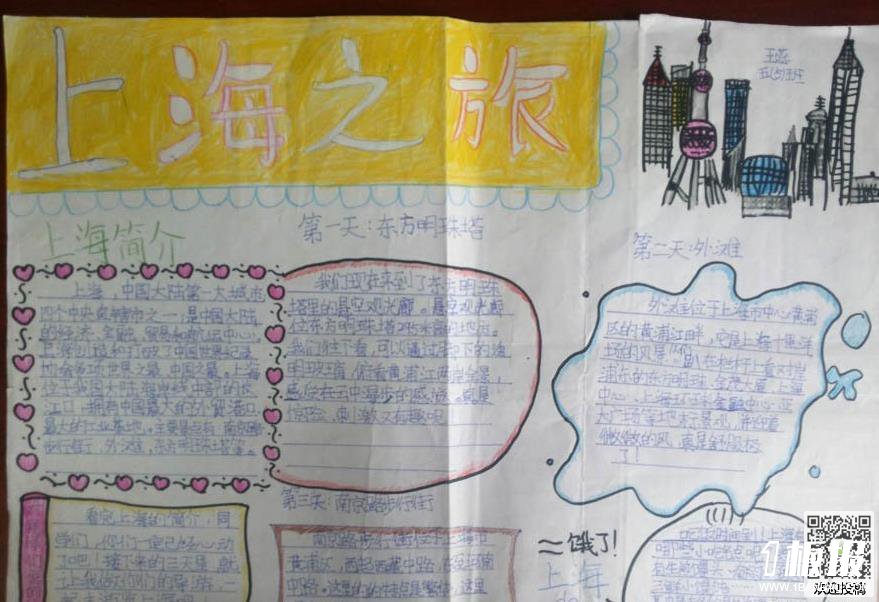 上海之旅
王
五(2)班
上海简介
上海，中国大陆第一大城市
四个中央直辖市之一，是中国大陆
的经济、金融、贸易和航运中心。
上海创造和打破了中国世界纪录
协会多项世界之最、中国之最。上海
位于我国大陆海岸线中部的长
江口，拥有中国最大的外贸港口
最大的工业基地。主要景点有：南京路
步行街，外滩，东方明珠塔等。
第一天：东方明珠塔
我们现在来到了东方明珠
塔里的悬空观光廊。悬空观光廊
位东方明珠塔259米高的地方。
我们往下看，可以通过脚下的透
明玻璃，俯看黄浦江两岸全景，
感受在云中漫步的感觉。真是
惊险、刺激又有趣呢！
第二天：外滩
外滩位于上海市中心黄浦
区的黄浦江畔，它是上海十里洋
场的风景
在栏杆上看对岸
浦东的东方明珠、金茂大厦、上海
中心、上海环球金融中心、正
大广场等地标景观，并迎着
微微的风，真是舒服极
了！
看完上海的简介，同
学们，你们一定已经心动
了吧！接下来的三天里，就
让我做你们的导游，一
第三天：南京路步行街
南京路步行街位于上海市
黄浦区，西起西藏中路，东至河南
中路。这里的特点是繁华，这里
饿了！
上海
吃饭时间到！上海
小吃
生煎馒头
欢迎投稿